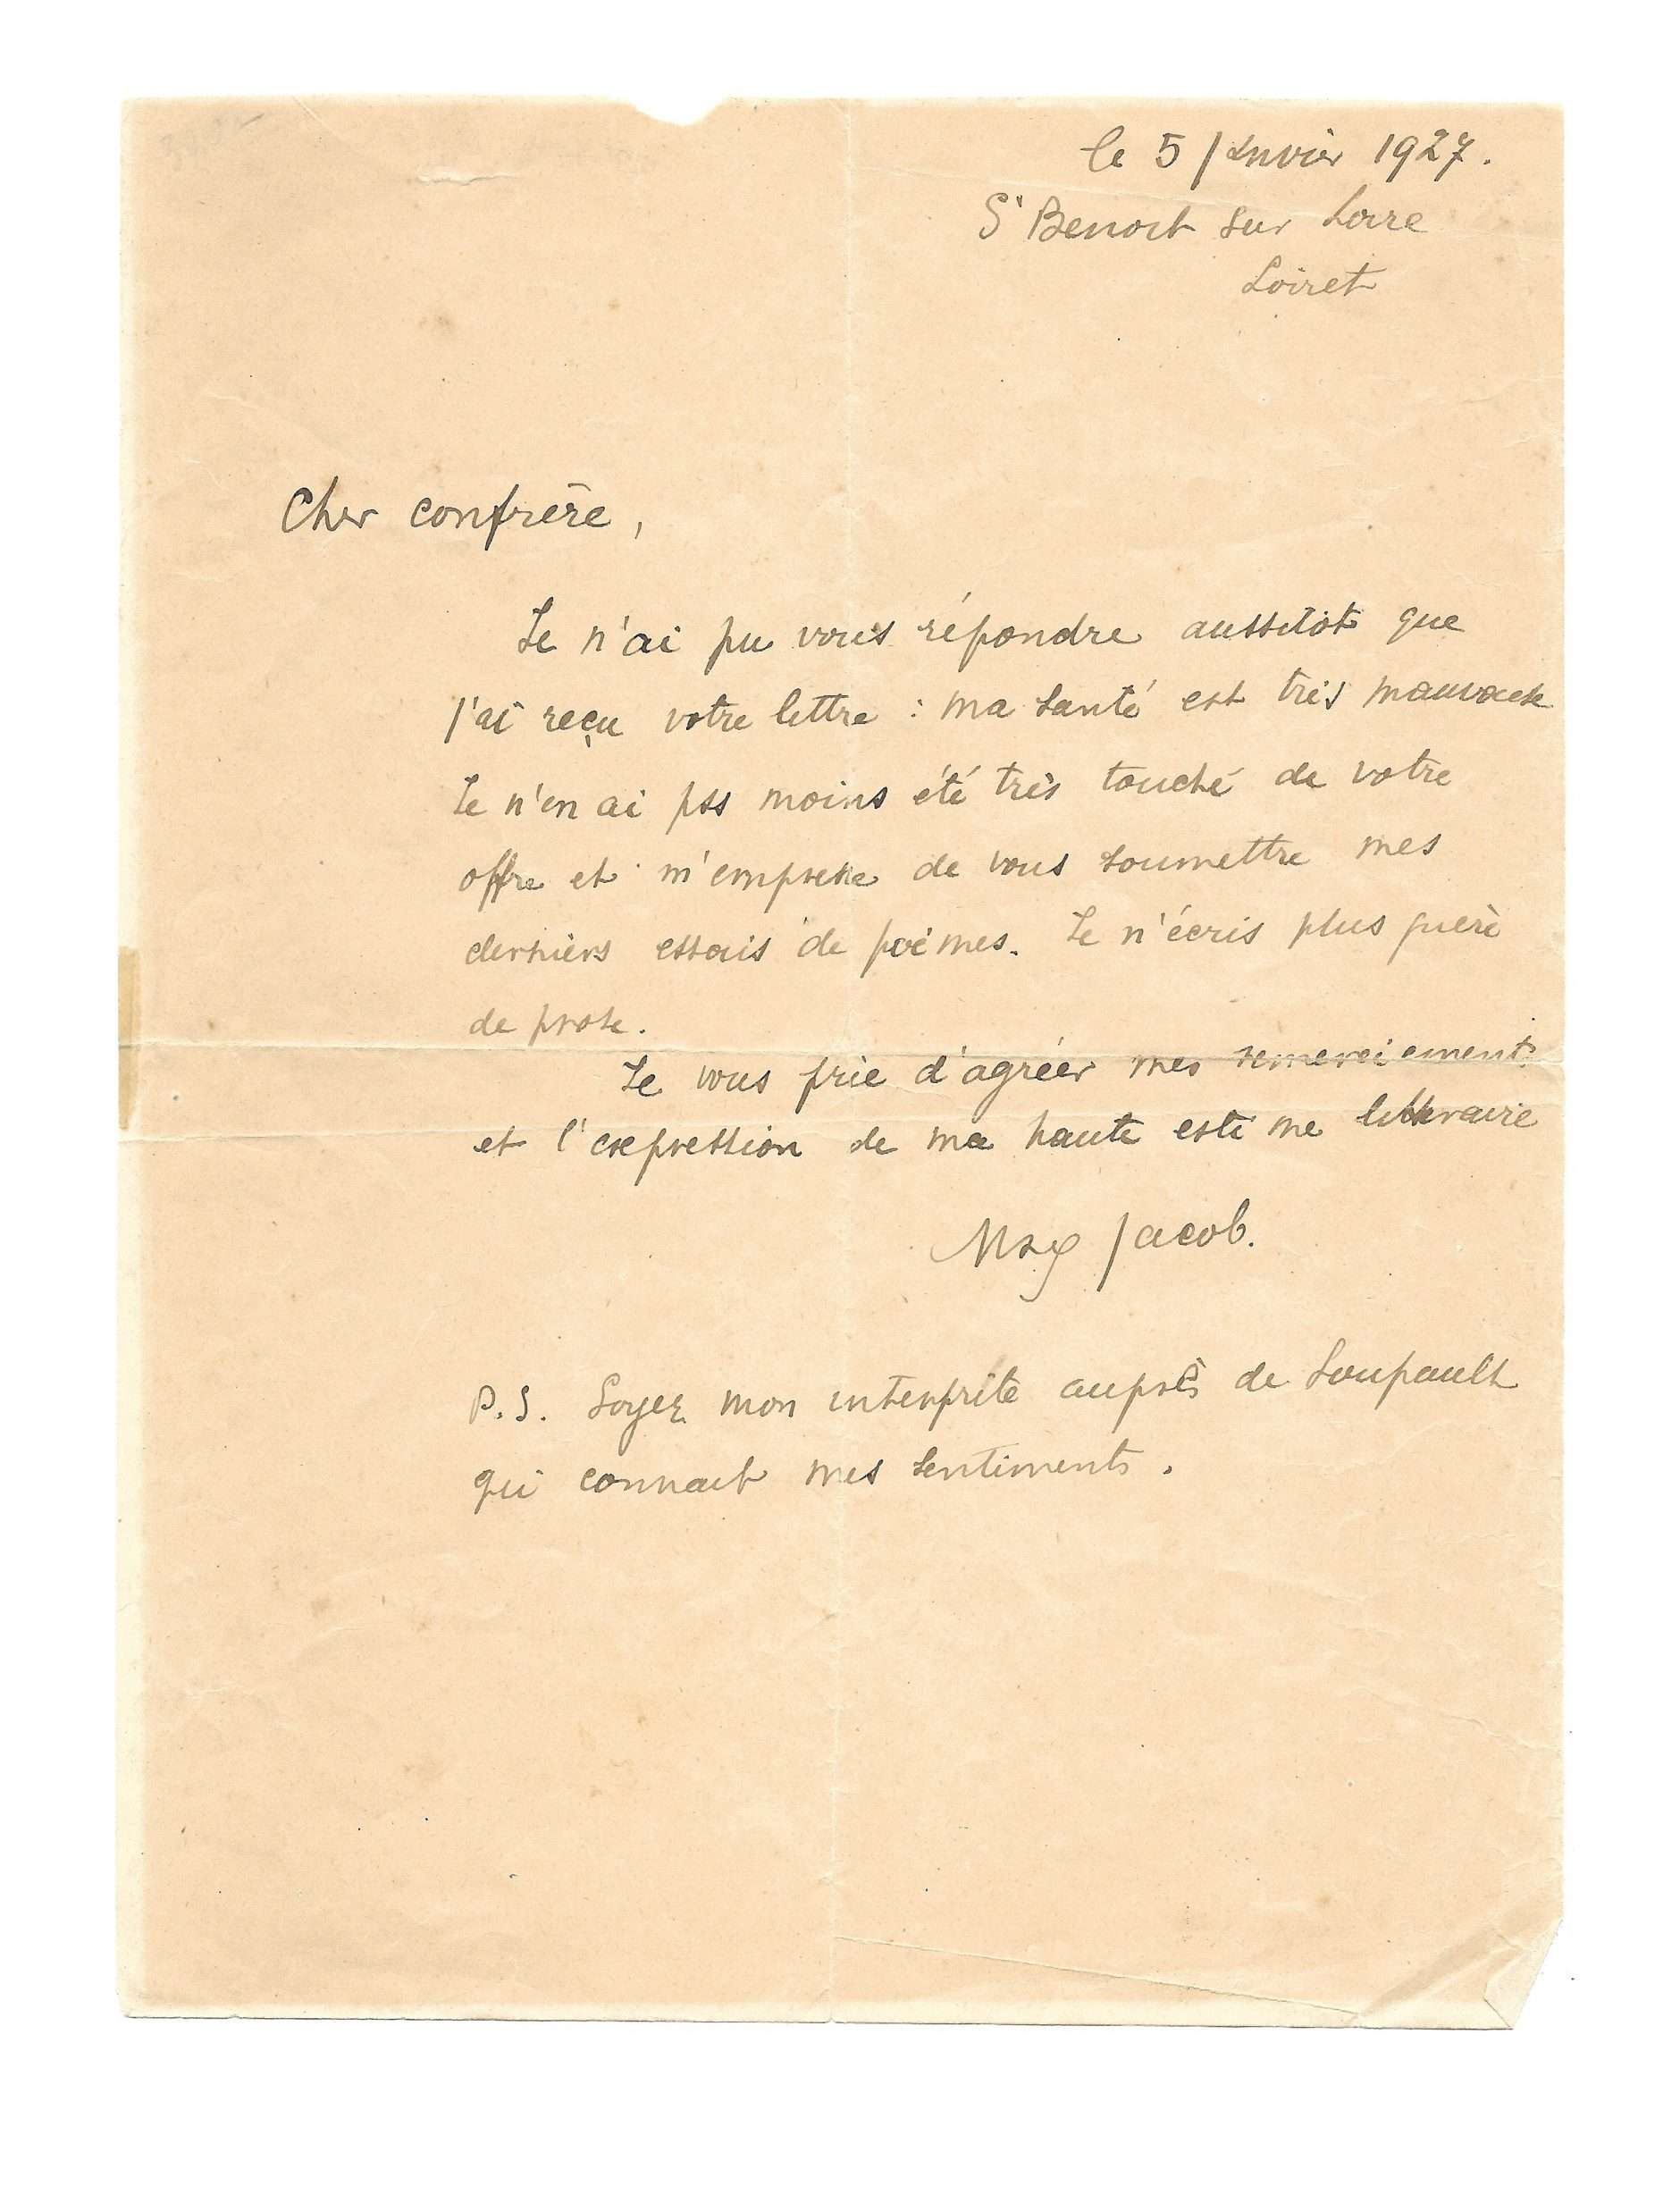 le 5 janvier 1927.
St Benoit sur Loire
Loiret
Cher confrère,
Je n'ai pu vous répondre aussitôt que
j'ai reçu votre lettre : ma santé est très mauvaise
Je n'en ai pas moins été très touché de votre
offre et m'empresse de vous soumettre mes
derniers essais de poèmes. Je n'écris plus guère
de prose.
Je vous prie d'agréer mes remerciements
et l'expression de ma haute estime littéraire
Max Jacob.
P.S. Soyez mon interprète auprès de Soupault
qui connait mes sentiments.